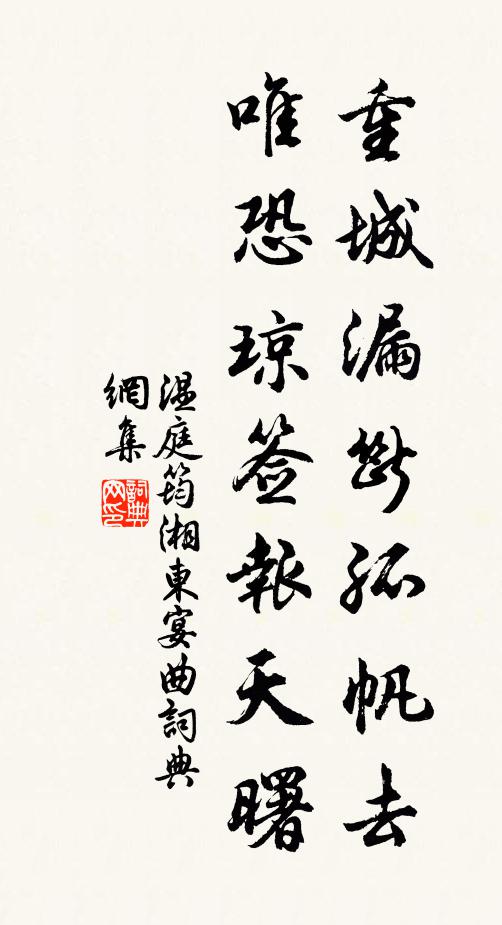 重城漏斷孤帆去
唯恐琼签報天曙
温庭筠湘東宴曲詞典
網集
詞典
网印